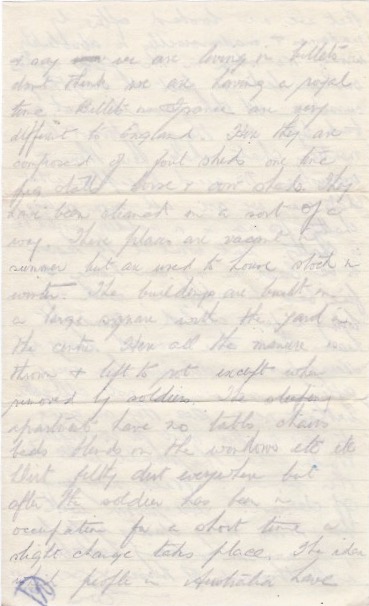 & say we are living in billets
don't think we are having a royal
time Billets in France are very
different to England. Here they are
composed of fowl sheds one time
pig stalls horse & cow sheds. They
have been cleaned in a sort of a
way. These places are vacant
summer but are used to house stock in
winter. The buildings are built in
a large square with the yard in
the centre. Here all the manure is
thrown & left to rot except when
removed by soldiers. The sleeping
apartments have no tables chairs
beds blinds on the windows etc etc
filthy dirt everywhere but
after the soldier has been in
occupation for a short time a
slight change takes place. The idea
people in Australia have